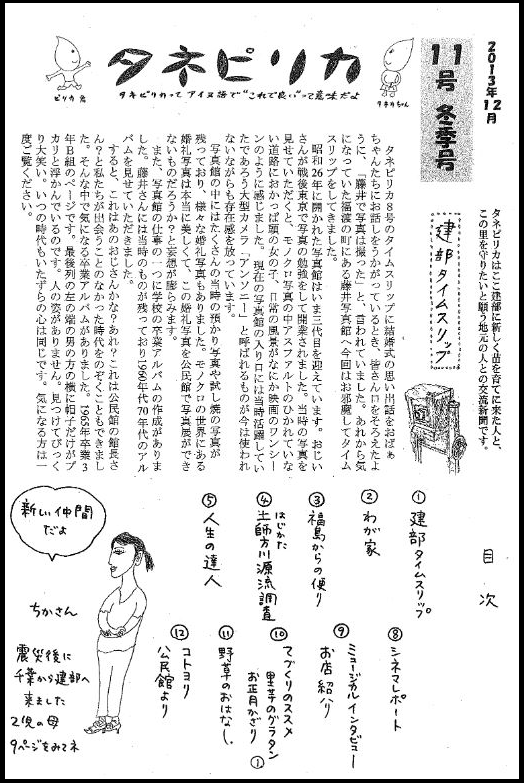 タネピリカ
タネピリカって アイヌ語で"これで良い"って意味だよ
ピリカ君
タネカちゃん
2013年12月
11号 冬季号
タネピリカはここ建部に新しく苗を育てに来た人と、
この里を守りたいと願う地元の人との交流新聞です。
建部タイムスリップ
タネピリカ8号のタイムスリップに結婚式の思い出話をおばぁ
ちゃんたちにお話しをうかがっているとき、皆さん口をそろえたよ
うに、「藤井で写真は撮った」と、言われていました。あれから気
になっていた福渡の町にある藤井写真館へ今回はお邪魔してタイム
スリップをしてきました。
昭和26年に開かれた写真館はいま三代目を迎えています。おじい
さんが戦後東京で写真の勉強をして開業されました。当時の写真を
見せていただくと、モノクロ写真の中アスファルトのひかれていな
い道路におかっぱ頭の女の子、日常の風景がなにか映画のワンシー
ンのように感じました。現在の写真館の入り口には当時活躍してい
たであろう大型カメラ「アンソニー」と呼ばれるものが今は使われ
ないながらも存在感を放っています。
写真館の中にはたくさんの当時の預かり写真や試し焼の写真が
残っており、様々な婚礼写真もありました。モノクロの世界にある
婚礼写真は本当に美しくて、この婚礼写真を公民館で写真展ができ
ないものだろうか？と妄想が膨らみます。
また、写真館の仕事の一つに学校の卒業アルバムの作成がありま
した。藤井さんには当時のものが残っており1960年代70年代のアル
バムを見せていただきました。
すると、これはあのおじさんかな？あれ？これは公民館の館長さ
ん？と私たちが出会うことのなかった時代をのぞくこともできまし
た。そんな中で気になる卒業アルバムがありました。1965年卒業3
年B組のページです。最後列の左の端の男の方の横に帽子だけがプ
カリと浮かんでいるのです。人の姿がありません。見つけてびっく
り大笑い、いつの時代もいたずらの心は同じです。気になる方は一
度ご覧ください。
目次
① 建部タイムスリップ
② わが家
③ 福島からの便り
④ 土師方川源流調査
はじかた
⑤ 人生の達人
⑧ シネマレポート
⑨ ミュージカルインタビュー
お店紹介
⑩ てづくりのススメ
里芋のグラタン
お正月かざり ①
⑪ 野草のおはなし
⑫ コトヨリ
公民館より
新しい仲間
だよ
ちかさん
震災後に
千葉から建部へ
来ました
2児の母
9ページをみてネ